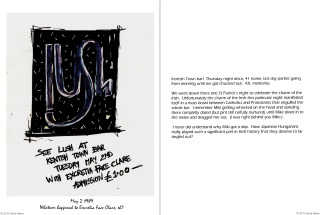 LUSH
SEE LUSH AT
KENTON TOWN BAR
TUESDAY MAY 2ND
WITH EXCRETIA FACE CLARE
ADMISSION £3·00 —
May 2 1989
Whatever happened to Excretia Face Clare, eh?
Kenton Town Bar! Thursday night disco, 41 hones, last day parties going
from morning until we got chucked out. Ah, memories.
We went down there one St Patrick's night to celebrate the charm of the
Irish. Unfortunately the charm of the Irish this particular night manifested
itself in a mass brawl between Catholics and Protestants that engulfed the
whole bar. I remember Miki getting whacked on the head and standing
there completely dazed (but pint still carefully nurtured), and Mike dived in to
the melee and dragged her out. (I was right behind you Mike).
I never did understand why Miki got a slap. Have Japanese Hungarians
really played such a significant part in Irish history that they deserve to be
singled out?